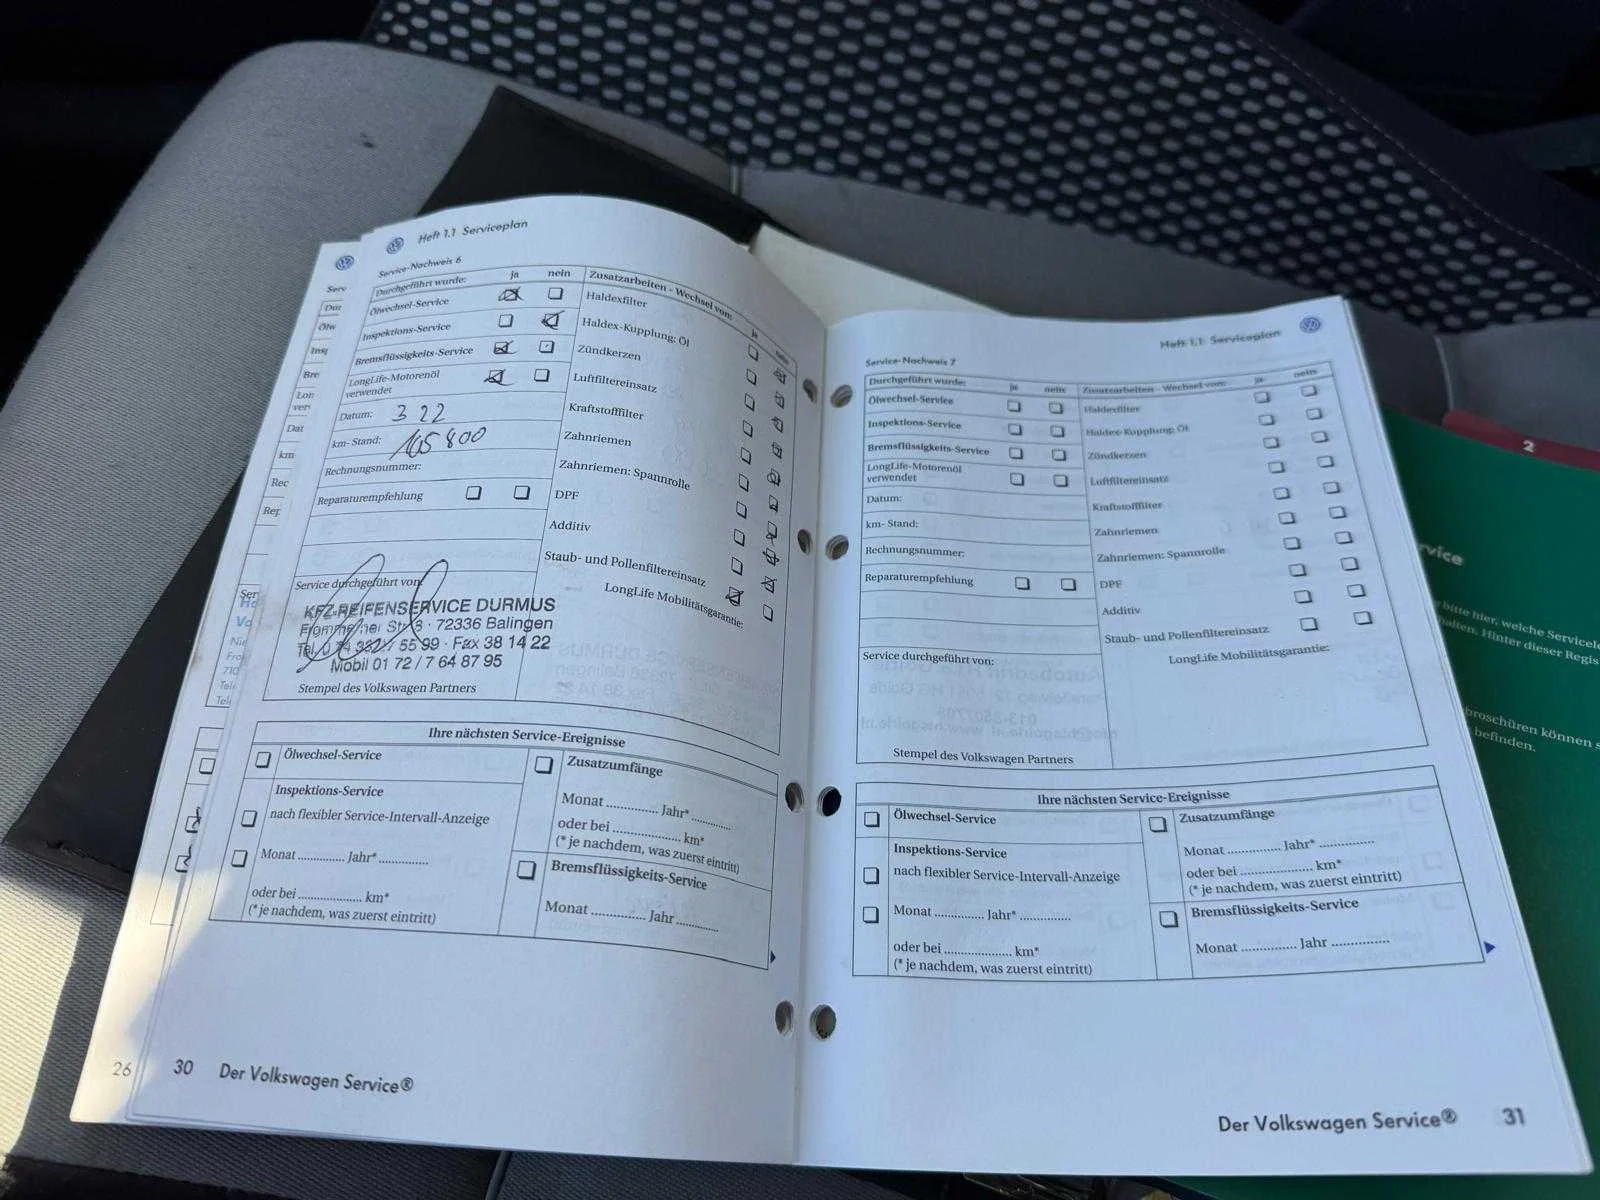 Heft 1.1 Serviceplan
Service-Nachweis 6
Durchgeführt wurde: ja nein
Ölwechsel-Service
Inspektions-Service
Bremsflüssigkeits-Service
LongLife-Motorenöl
verwendet
Datum: 3 22
km- Stand: 165 800
Rechnungsnummer:
Reparaturempfehlung
Service durchgeführt von:
KFZ-REIFENSERVICE DURMUS
72336 Balingen
55 99 · Fax 38 14 22
Mobil 01 72 / 7 64 87 95
Stempel des Volkswagen Partners
Zusatzarbeiten - Wechsel von: ja
Haldexfilter
Haldex-Kupplung: Öl
Zündkerzen
Luftfiltereinsatz
Kraftstofffilter
Zahnriemen
Zahnriemen: Spannrolle
DPF
Additiv
Staub- und Pollenfiltereinsatz
LongLife Mobilitätsgarantie:
Ihre nächsten Service-Ereignisse
Ölwechsel-Service
Inspektions-Service
nach flexibler Service-Intervall-Anzeige
Monat ............. Jahr* ..............
oder bei .................. km*
(* je nachdem, was zuerst eintritt)
Zusatzumfänge
Monat .............. Jahr* ...........
oder bei ................... km*
(* je nachdem, was zuerst eintritt)
Bremsflüssigkeits-Service
Monat .............. Jahr ............
26
30 Der Volkswagen Service®
Heft 1.1 Serviceplan
Service-Nachweis 7
Durchgeführt wurde: ja nein
Ölwechsel-Service
Inspektions-Service
Bremsflüssigkeits-Service
LongLife-Motorenöl
verwendet
Datum:
km- Stand:
Rechnungsnummer:
Reparaturempfehlung
Service durchgeführt von:
Stempel des Volkswagen Partners
Zusatzarbeiten - Wechsel von: ja nein
Haldexfilter
Haldex-Kupplung: Öl
Zündkerzen
Luftfiltereinsatz
Kraftstofffilter
Zahnriemen
Zahnriemen: Spannrolle
DPF
Additiv
Staub- und Pollenfiltereinsatz
LongLife Mobilitätsgarantie:
Ihre nächsten Service-Ereignisse
Ölwechsel-Service
Inspektions-Service
nach flexibler Service-Intervall-Anzeige
Monat .............. Jahr* ..............
oder bei ................... km*
(* je nachdem, was zuerst eintritt)
Zusatzumfänge
Monat .............. Jahr* ..............
oder bei .................... km*
(* je nachdem, was zuerst eintritt)
Bremsflüssigkeits-Service
Monat .............. Jahr ..............
Der Volkswagen Service® 31
2
bitte hier, welche
Hinter dieser
broschüren können
befinden.